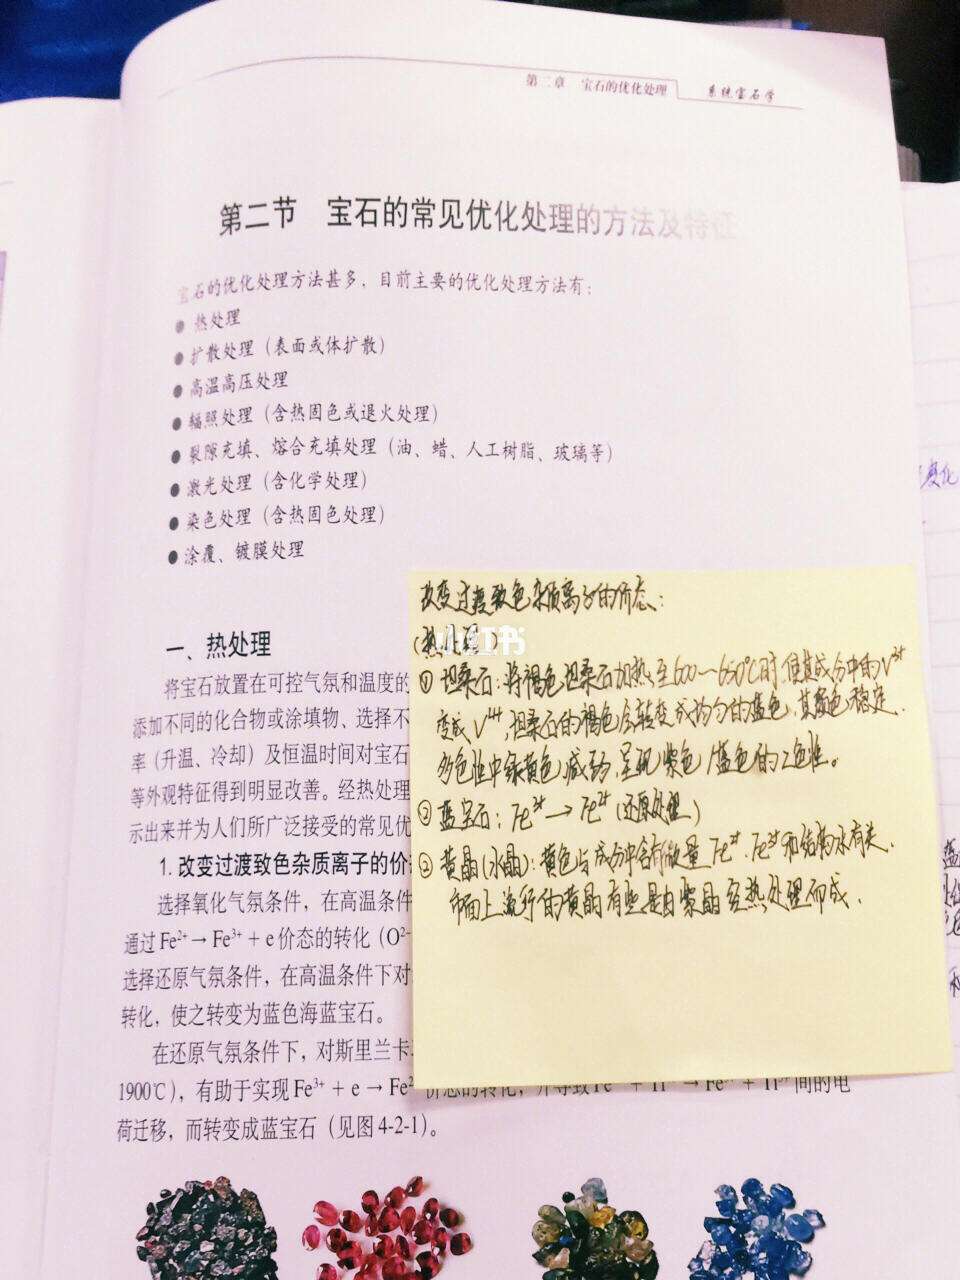 第二章 宝石的优化处理 系统宝石学
第二节 宝石的常见优化处理的方法及特征
宝石的优化处理方法甚多，目前主要的优化处理方法有：
● 热处理
● 扩散处理（表面或体扩散）
● 高温高压处理
● 辐照处理（含热固色或退火处理）
● 裂隙充填、熔合充填处理（油、蜡、人工树脂、玻璃等）
● 激光处理（含化学处理）
● 染色处理（含热固色处理）
● 涂覆、镀膜处理
一、热处理
将宝石放置在可控气氛和温度的
添加不同的化合物或涂填物、选择不
率（升温、冷却）及恒温时间对宝石
等外观特征得到明显改善。经热处理
示出来并为人们所广泛接受的常见优
1. 改变过渡致色杂质离子的价
选择氧化气氛条件，在高温条件
通过Fe²⁺→Fe³⁺+e价态的转化（O²⁻
选择还原气氛条件，在高温条件下对
转化，使之转变为蓝色海蓝宝石。
在还原气氛条件下，对斯里兰卡
1900℃），有助于实现Fe³⁺+e→Fe² 间的电
荷迁移，而转变成蓝宝石（见图4-2-1）。
改变过渡致色杂质离子的价态：
（热处理）
小红书
① 坦桑石：将褐色坦桑石加热至600～650℃时，使其成分中的V³⁺
变成V⁴⁺，坦桑石的褐色会转变成均匀的蓝色，其颜色稳定，
多色性中绿黄色减弱，呈现紫色/蓝色的二色性。
② 蓝宝石：Fe³⁺→Fe²⁺（还原处理）
③ 黄晶（水晶）：黄色与成分中含有微量Fe³⁺、Fe²⁺和结构水有关，
市面上流行的黄晶有些是由紫晶经热处理而成。
变化